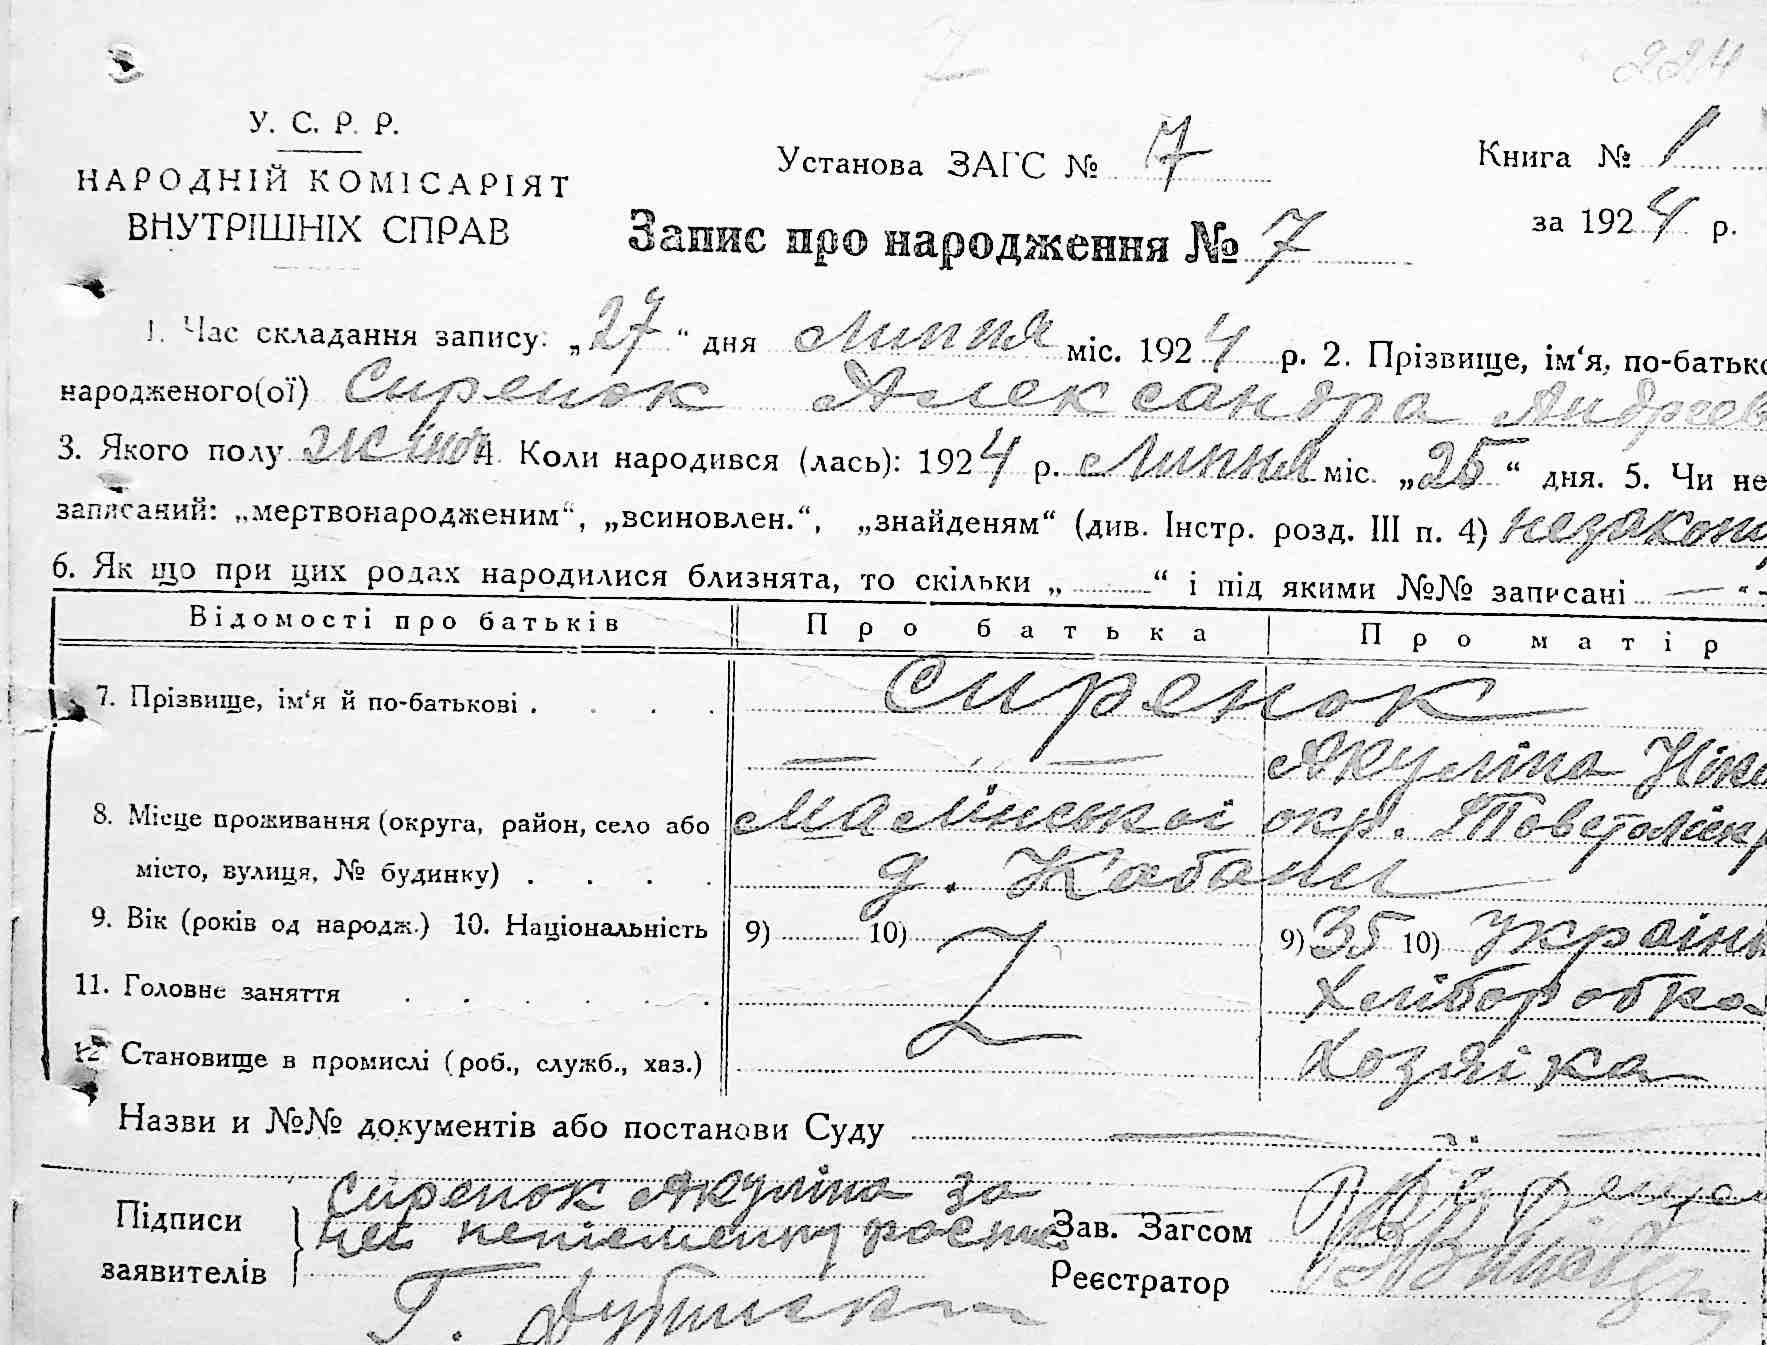 7
224
У. С. Р. Р.
НАРОДНІЙ КОМІСАРІЯТ
ВНУТРІШНІХ СПРАВ
Установа ЗАГС № 7
Книга № 1
за 1924 р.
Запис про народження № 7
1. Час складання запису: „27“ дня Липня міс. 1924 р. 2. Прізвище, ім‘я, по-батько
народженого(ої) Сиренок Александра Андреев
3. Якого полу жіноч 4. Коли народився (лась): 1924 р. Липня міс. „25“ дня. 5. Чи не
записаний: „мертвонародженим“, „всиновлен.“, „знайденям“ (див. Інстр. розд. III п. 4) незакон
6. Як що при цих родах народилися близнята, то скільки „ “ і під якими №№ записані —
Відомості про батьків Про батька Про матір
7. Прізвище, ім‘я й по-батькові . . . . Сиренок
— — Акуліна
8. Місце проживання (округа, район, село або Малінської окр.
місто, вулиця, № будинку) . . . . д. Кабани
9. Вік (років од народж.) 10. Національність 9) 10) 9) 35 10) Україн
11. Головне заняття . . . . . . Хліборобка
12 Становище в промислі (роб., служб., хаз.) Хозяіка
Назви и №№ документів або постанови Суду —
Підписи заявителів Сиренок Акуліна за
неї неписменну роспис
Г. Дубинск
Зав. Загсом
Реєстратор